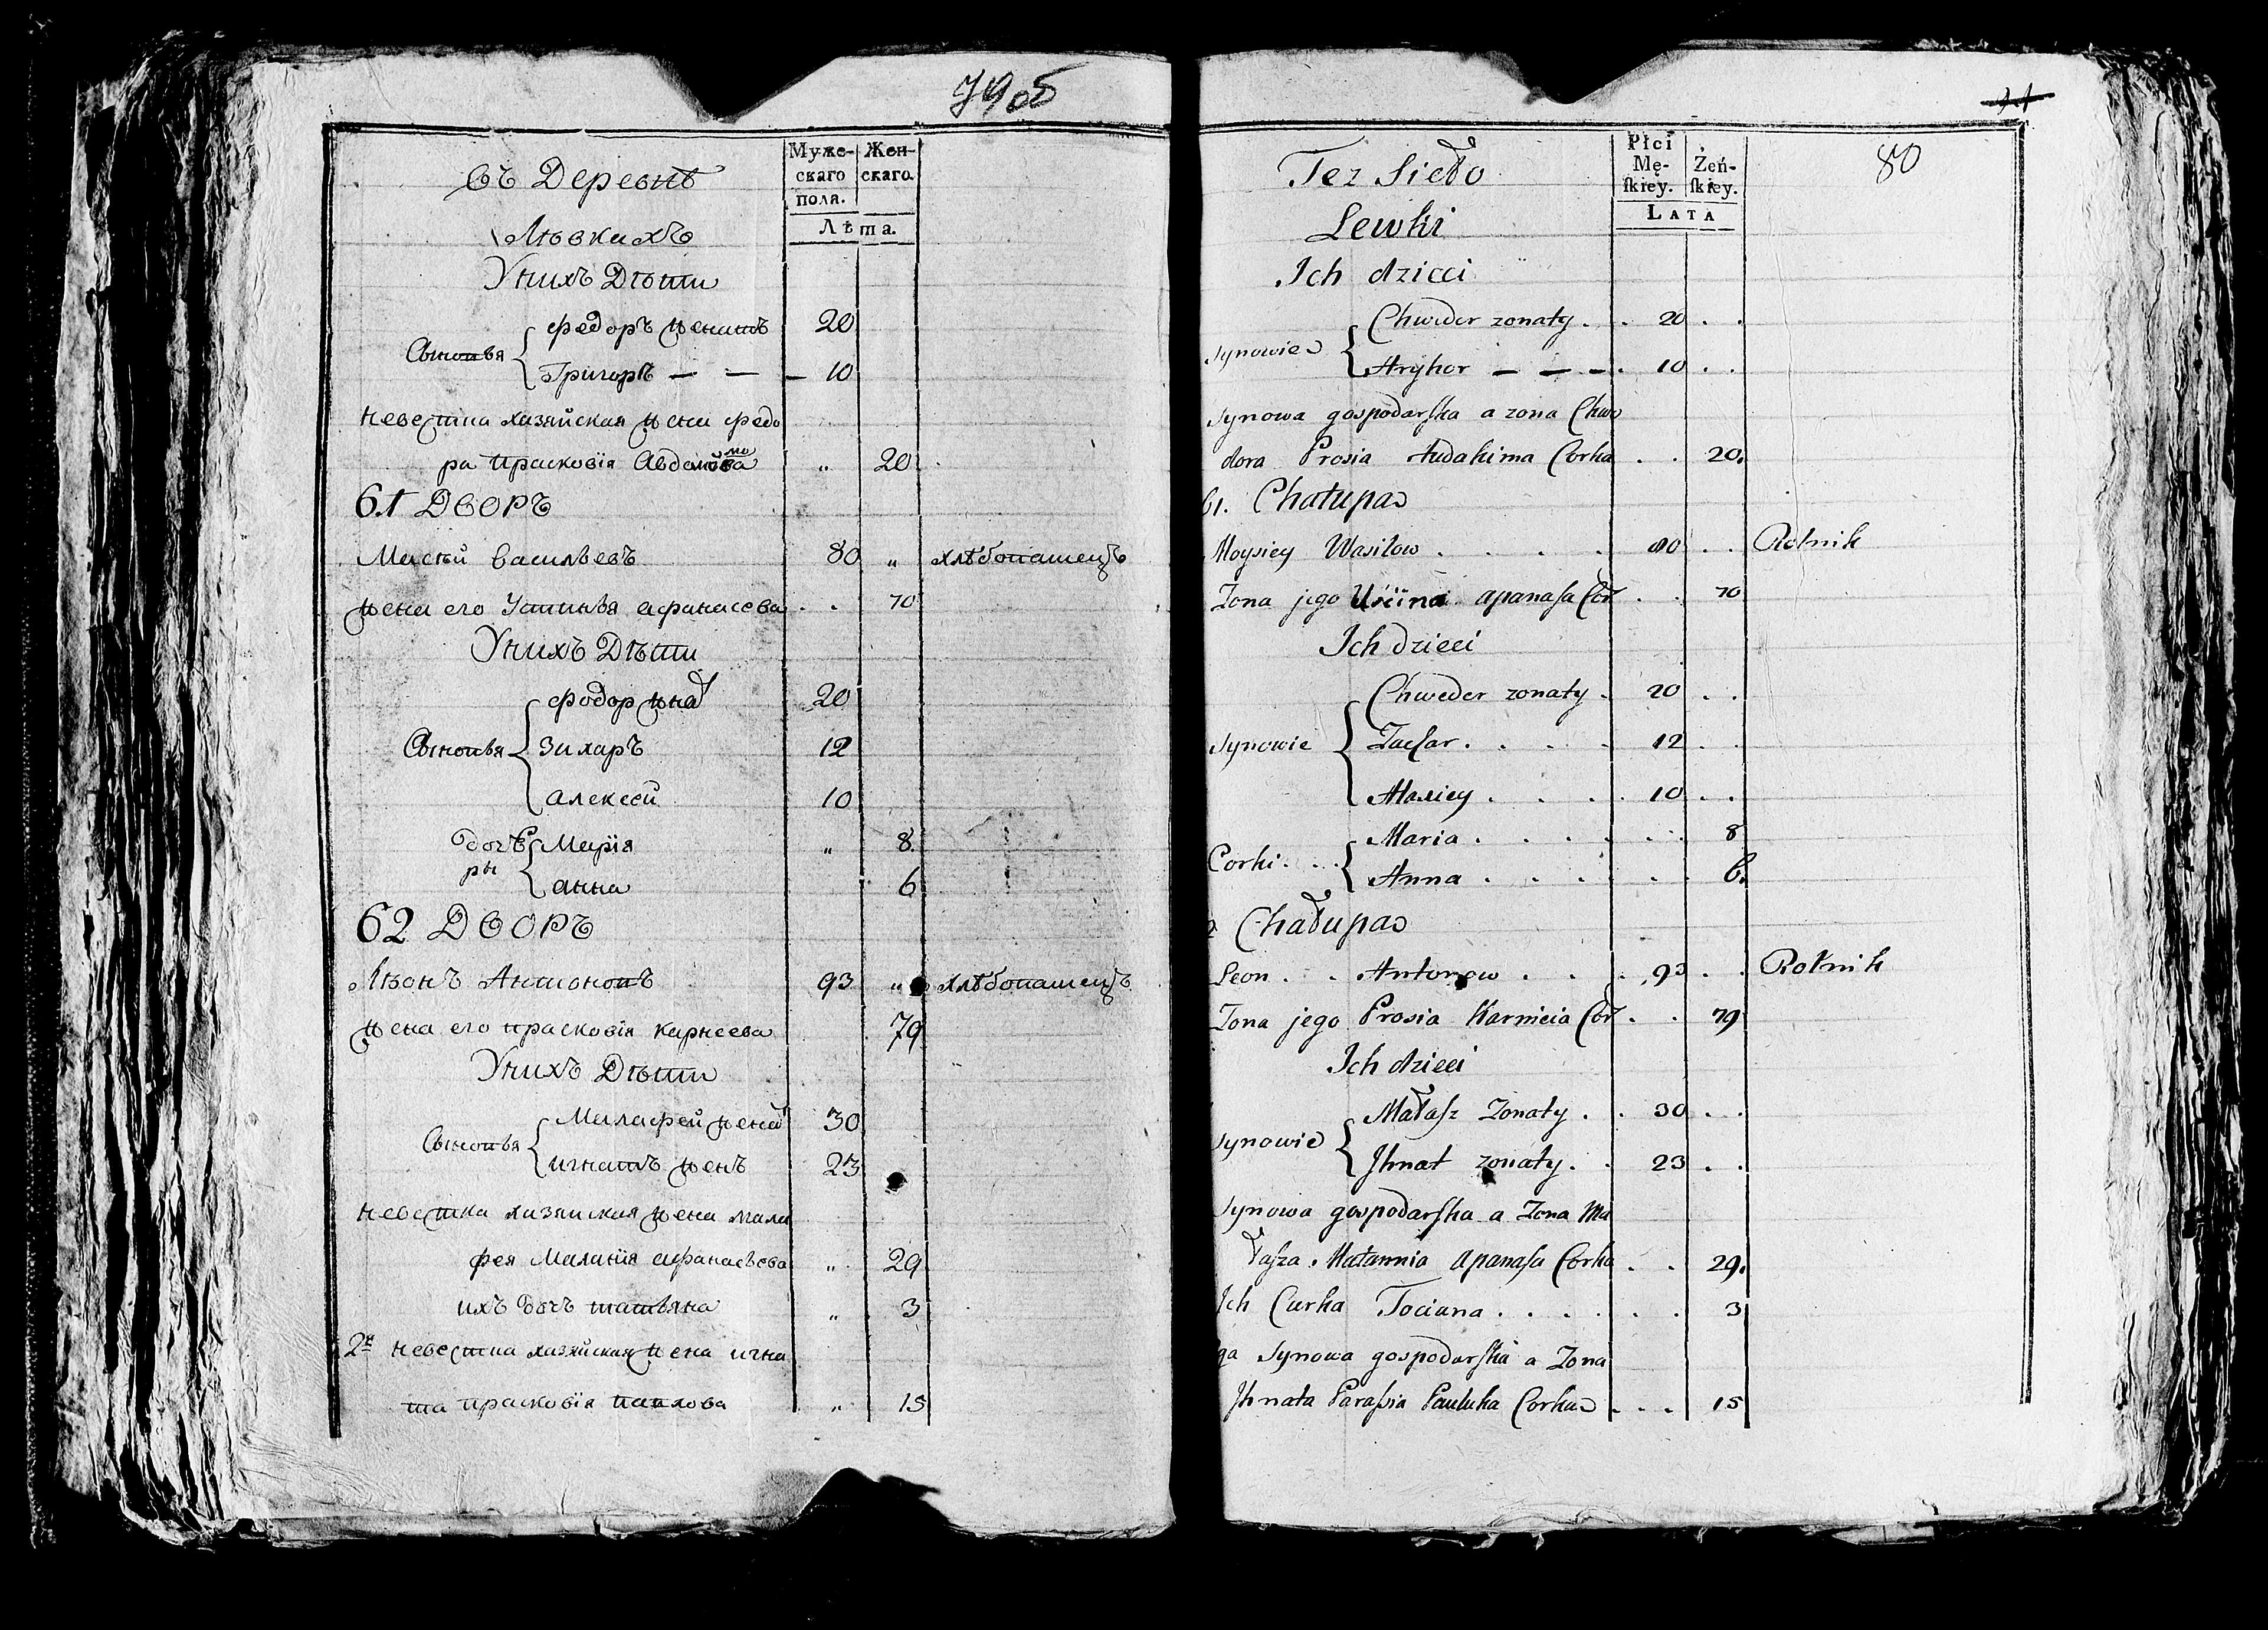 79об
въ Деревнѣ
Муже-
скаго
поля.
Жен-
скаго.
Лѣта.
Лѣвкахъ
Унихъ Дѣти
Сыновья
Федоръ женатъ 20
Григоръ — — — 10
невестка хазяйская жена федо
ра Прасковія " 20
61 Дворъ
васильевъ 80 " хлѣбопашецъ
жена его Устинья афанасева . . 70
Унихъ Дѣти
Сыновья
Фодор жена 20
Захаръ 12
алексей 10
дочѣ
ры
Марія " 8
анна 6
62 Дворъ
Лѣонъ Антоновъ 93 " хлѣбопашецъ
жена его прасковія карнеева 79
Унихъ Дѣти
Сыновья
Малафей жена 30
игнатъ женъ 23
невестка хазяйская жена мала
фея Маланія афанасьева " 29
ихъ дочъ татьяна " 3
2я невестка хазяйская жена игна
та прасковія павлова " 15
80
Też Sieło
Płci
Mę-
ſkiey.
Żeń-
ſkiey.
LATA
Lewki
Ich dzieci
Synowie
Chweder zonaty . . 20 . .
Hryhor — — — . 10 . .
Synowa gospodarſka a zona Chwe
dora Prosia Audakima Corka . . 20.
61. Chałupa
Moysiey Wasilow . . . . 80 . . Rolnik
Zona jego Uścina apanaſa Cor . . 70
Ich dzieci
Synowie
Chweder zonaty . 20 . .
Zachar . . . . 12 . .
Alaxiey . . . . 10 . .
Corki . . .
Maria . . . . . . 8
Anna . . . . . . 6.
2 Chałupa
Leon . . Antonow . . . 93 . . Rolnik
Zona jego Prosia Karnieia Cor . . 79
Ich dzieci
Synowie
Małaſz Zonaty . . 30 . .
Jhnat zonaty . . 23 . .
Synowa gospodarſka a Zona Ma
łaſza Małannia apanaſa Corka . . 29.
Ich Curka Tociana . . . . . . 3
ga Synowa gospodarſka a Zona
Jhnata Paraſsia Pauluka Corka . . . 15